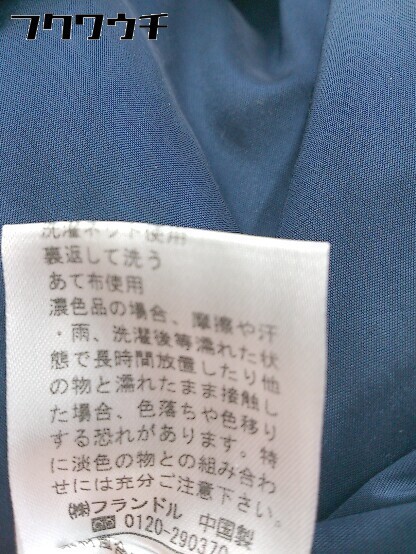 フクワウチ
洗濯ネット使用
裏返して洗う
あて布使用
濃色品の場合、摩擦や汗
・雨、洗濯後等濡れた状
態で長時間放置したり他
の物と濡れたまま接触し
た場合、色落ちや色移り
する恐れがあります。特
に淡色の物との組み合わ
せには充分ご注意下さい。
㈱フランドル 中国製
0120-290370